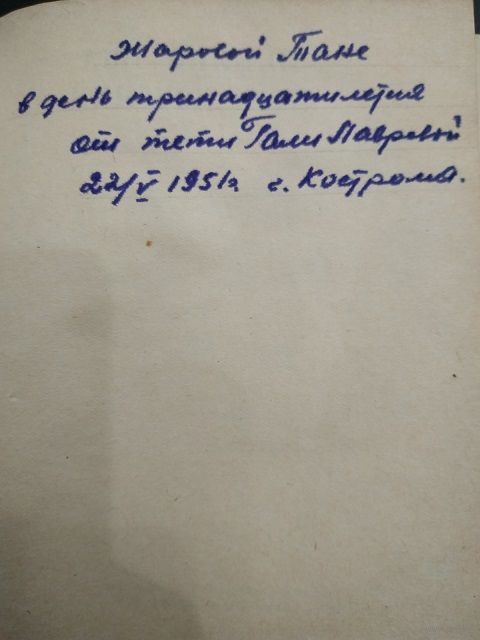 Жаровой Тане
в день тринадцатилетия
от тети Гали Лавровой
22/V 1951г. г. Кострома.